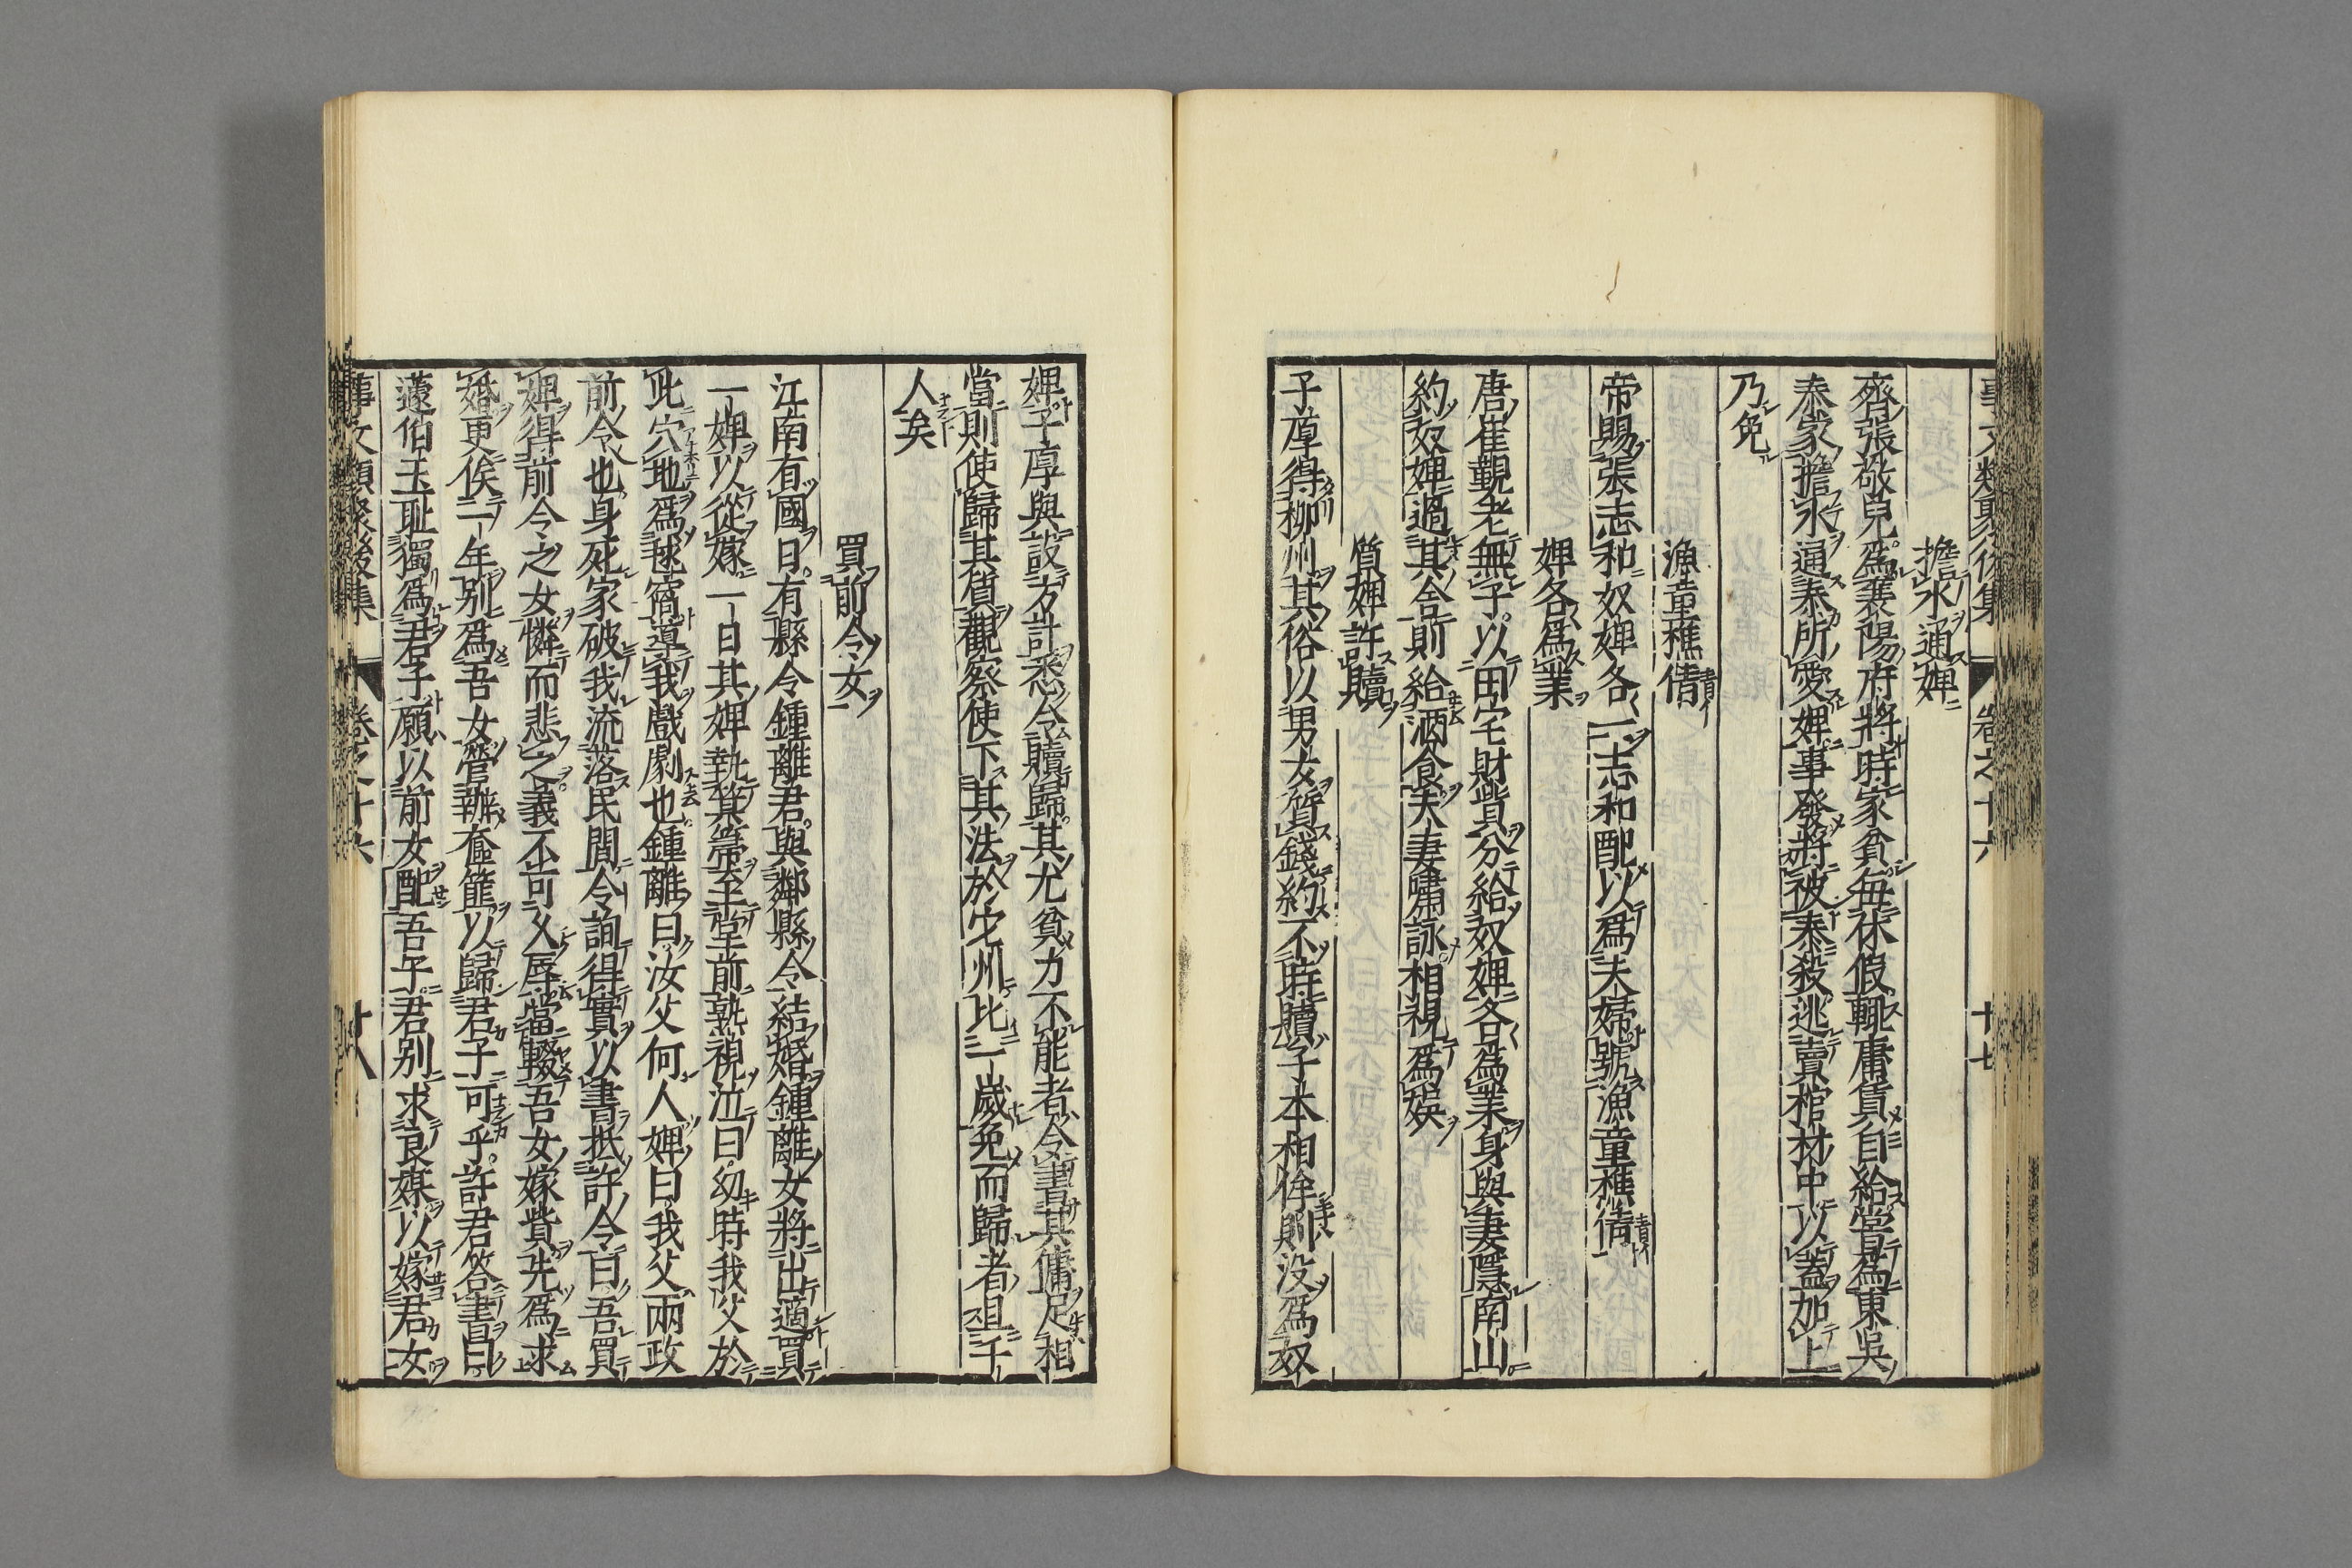 事文類聚後集 卷之十六 十七
擔水通婢
齊張敬兒爲襄陽府將時家貧每休假輒庸賃自給嘗爲東吳
泰家擔水通泰所愛婢事發將被泰殺逃賣棺材中以蓋加上
乃免
漁童樵倩
帝賜張志和奴婢各一志和配以爲夫婦號漁童樵倩
婢各爲業
唐崔覲老無子以田宅財貲分給奴婢各爲業身與妻隱南山
約奴婢過其舍則給酒食夫妻嘯詠相視爲娛
質婢許贖
子厚得柳州其俗以男女質錢約不時贖子本相侔則没爲奴
婢子厚與設方計悉令贖歸其尤貧力不能者令書其傭足相
當則使歸其質觀察使下其法於它州比一歲免而歸者且千
人矣
買前令女
江南有國日有縣令鍾離君與鄰縣令結婚鍾離女將出適買
一婢以從嫁一日其婢執箕箒至堂前熟視泣曰幼時我父於
此穴地爲毬窩導我戲劇也鍾離曰汝父何人婢曰我父兩政
前令也身死家破我流落民間令詢得實以書抵許令曰吾買
婢得前令之女憐而悲之義不可久辱當輟吾女嫁貲先爲求
婚更俟一年別爲吾女營辦奩篚以歸君子可乎許君答書曰
蘧伯玉耻獨爲君子願以前女配吾子君別求良媒以嫁君女
事文類聚後集 卷之十六 十八